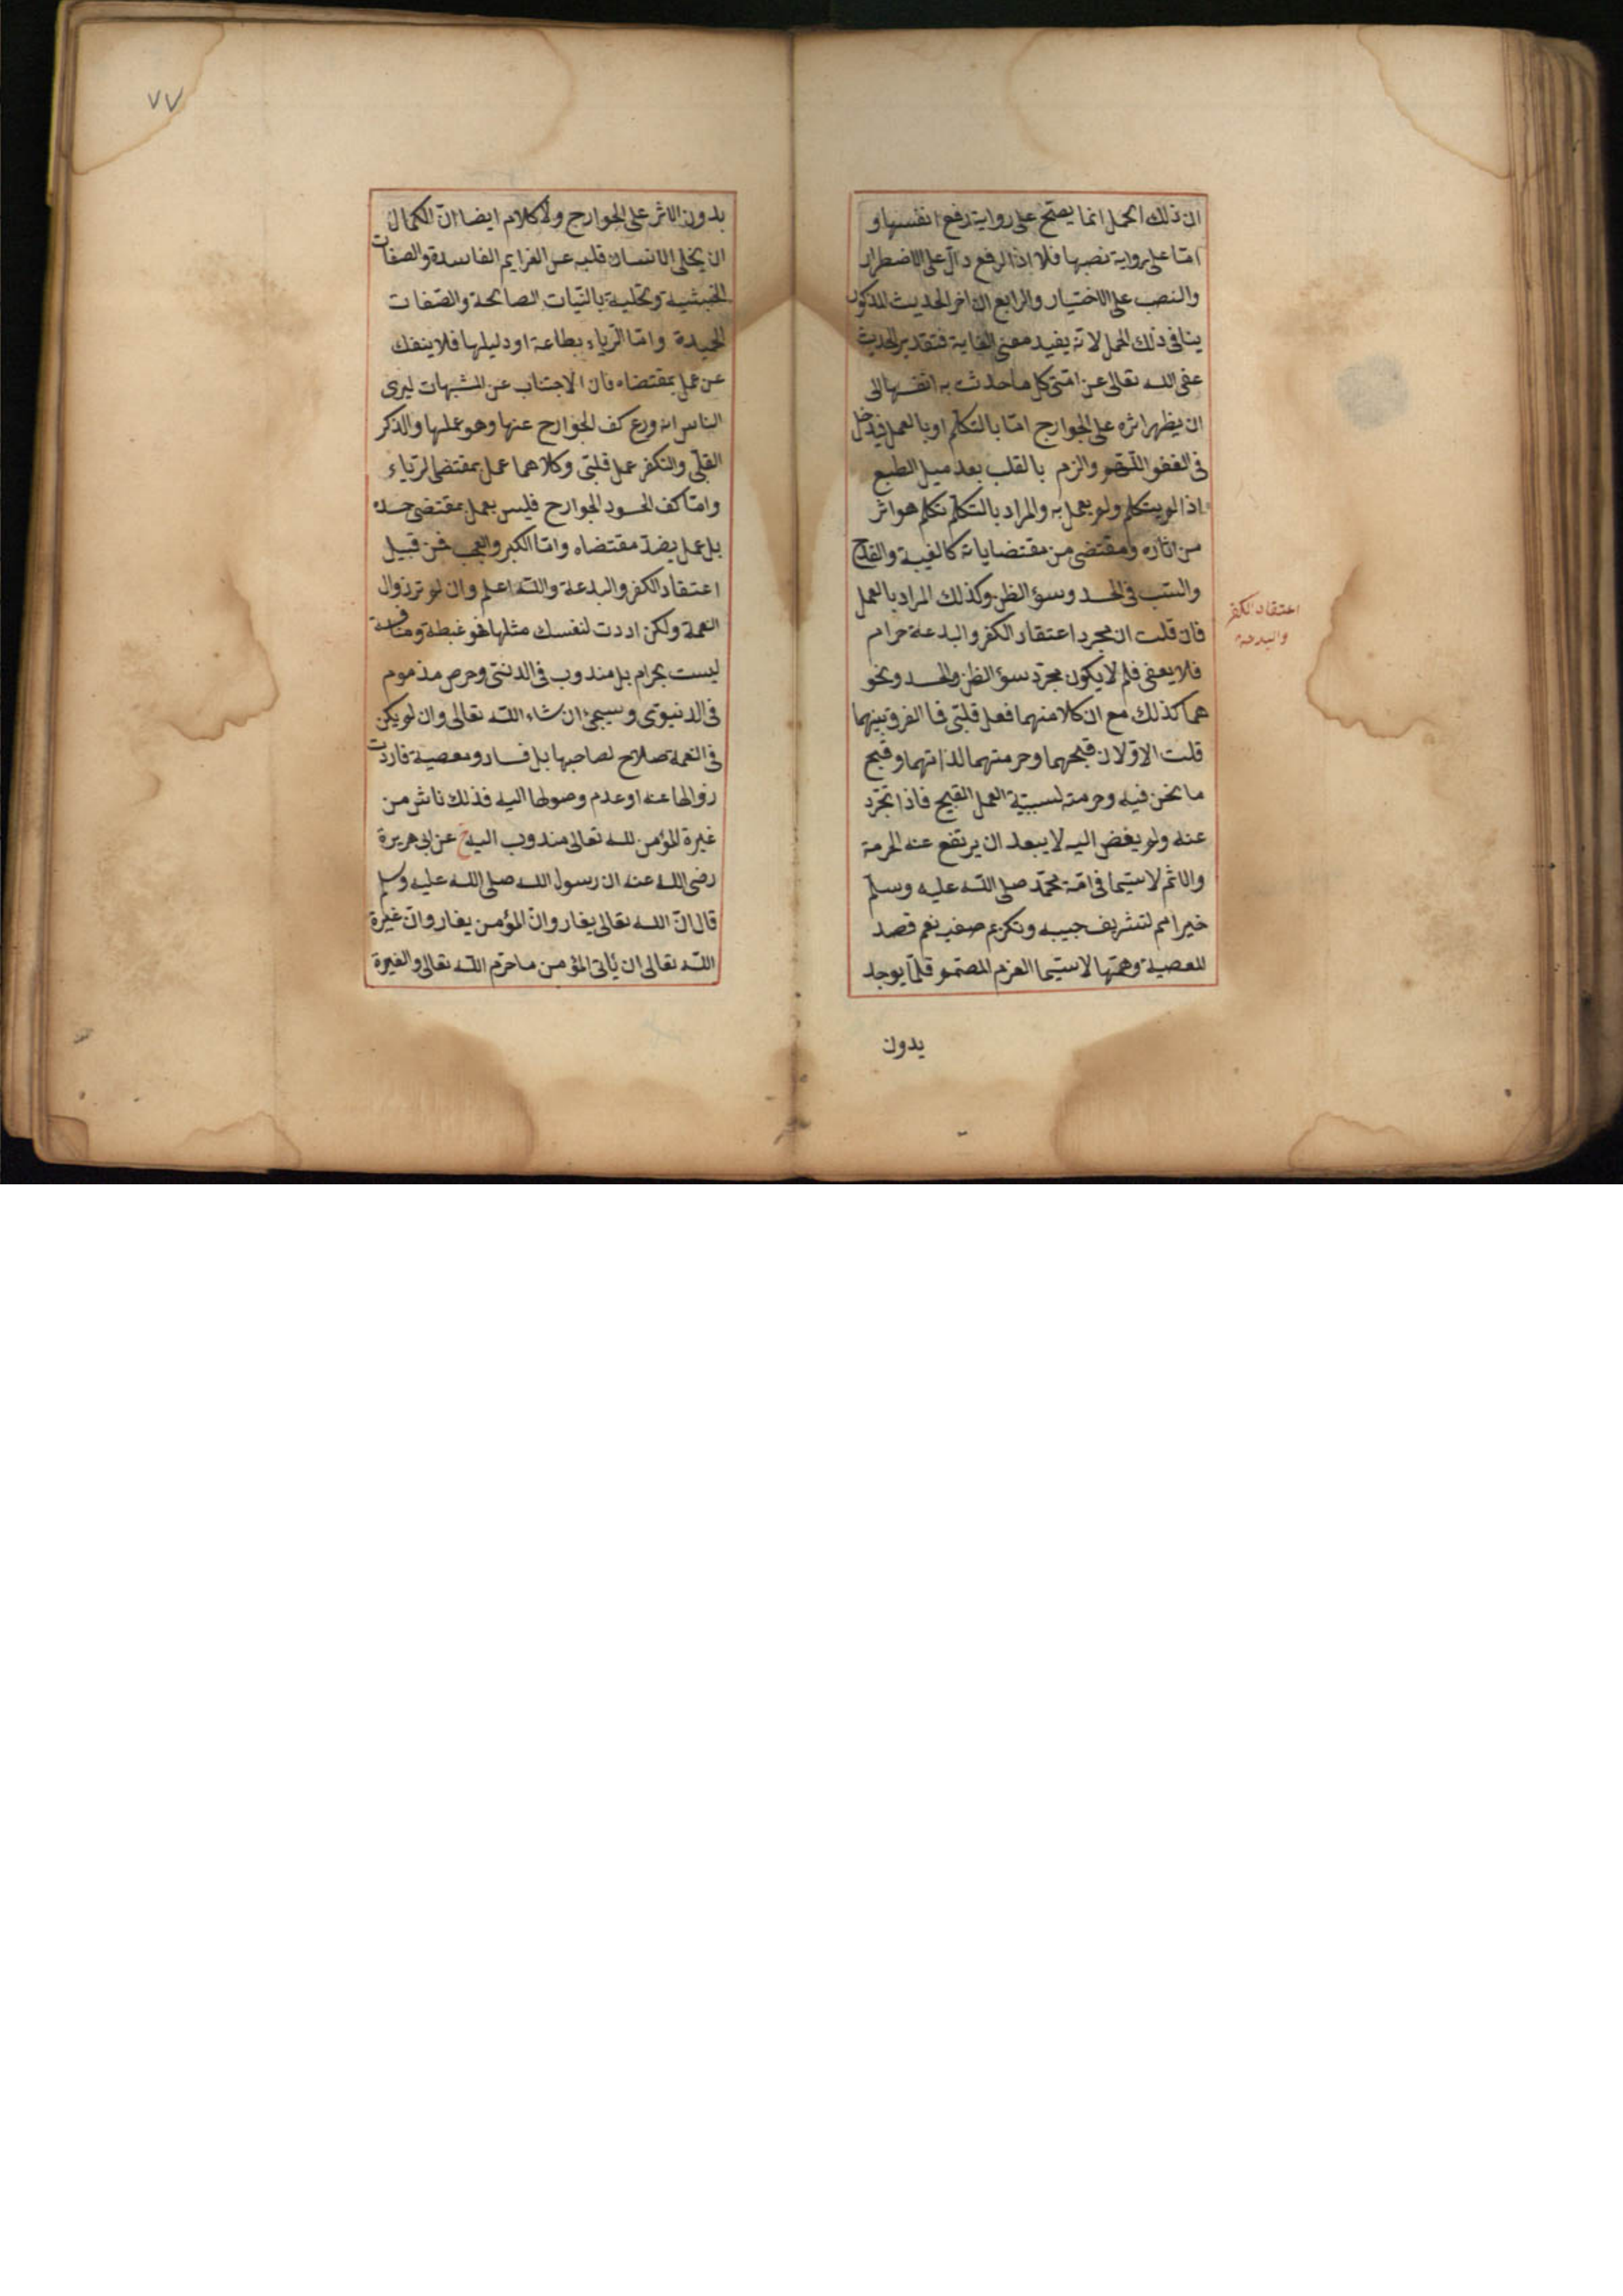 ان ذلك الحمل انما يصح على رواية رفع انفسها و
امّا على رواية نصبها فلا اذ الرفع دالّ على الاضطرار
والنصب على الاختيار والرابع ان اخر الحديث المذكور
ينافى ذلك الحمل لانه يفيد معنى الغاية فتقدير الحديث
عفى الله تعالى عن امتى كل ما حدثت به انفسها الى
ان يظهر اثره على الجوارح امّا بالتكلم او بالعمل فيدخل
فى العفو الهم والزم بالقلب بعد ميل الطبع
اذا لم يتكلم ولم يعمل به والمراد بالتكلم تكلم هو اثر
من اثاره ومقتضى من مقتضياته كالغيبة والقدح
والسّب فى الحسد وسوء الظن وكذلك المراد بالعمل
فان قلت ان مجرد اعتقاد الكفر والبدعة حرام
فلا يعفى فلم لا يكون مجرّد سوء الظن والحسد ونحو
هما كذلك مع ان كلا منهما فعل قلبّى فما الفرق بينهما
قلت الاوّلان قبحهما وحرمتهما لذاتهما وقبح
ما نحن فيه وحرمته لسببيّة العمل القبيح فاذا تجرّد
عنه ولم يفض اليه لا يبعد ان يرتفع عنه الحرمة
والاثم لا سيّما فى امّة محمّد صلى الله عليه وسلّم
خير امم لتشريف حبيبه وتكريم صفيه نعم قصد
المعصية وهمّها لا سيّما العزم المصمم قلّما يوجد
بدون
اعتقاد الكفر
والبدعة
٧٧
بدون الاثر على الجوارح ولا كلام ايضا انّ الكمال
ان يخلى الانسان قلبه عن العزايم الفاسدة والصفات
الخبيثة وتحليه بالنّيات الصالحة والصّفات
الحميدة وامّا الرّياء بطاعة او دليلها فلا ينفك
عن عمل بمقتضاه فان الاجتناب عن الشبهات ليرى
الناس انه ورع كف الجوارح عنها وهو عملها والذكر
القلبّى والتكفر عمل قلبّى وكلاهما عمل بمقتضى الرّياء
وامّا كف الحسود الجوارح فليس بعمل بمقتضى حسده
بل عمل بضدّ مقتضاه وامّا الكبر والعجب فمن قبيل
اعتقاد الكفر والبدعة والله اعلم وان لم ترد زوال
النعمة ولكن اردت لنفسك مثلها فهو غبطة ومنافسة
ليست بحرام بل مندوب فى الدنىّ وحرص مذموم
فى الدنيوّى وسيجئ ان شاء الله تعالى وان لم يكن
فى النعمة صلاح لصاحبها بل فساد ومعصية فاردت
زوالها عنه او عدم وصولها اليه فذلك ناش من
غيرة المؤمن لله تعالى مندوب اليه خ عن ابى هريرة
رضى الله عنه ان رسول الله صلى الله عليه وسلم
قال انّ الله تعالى يغار وانّ المؤمن يغار وانّ غيرة
الله تعالى ان يأتى المؤمن ما حرّم الله تعالى والغيرة